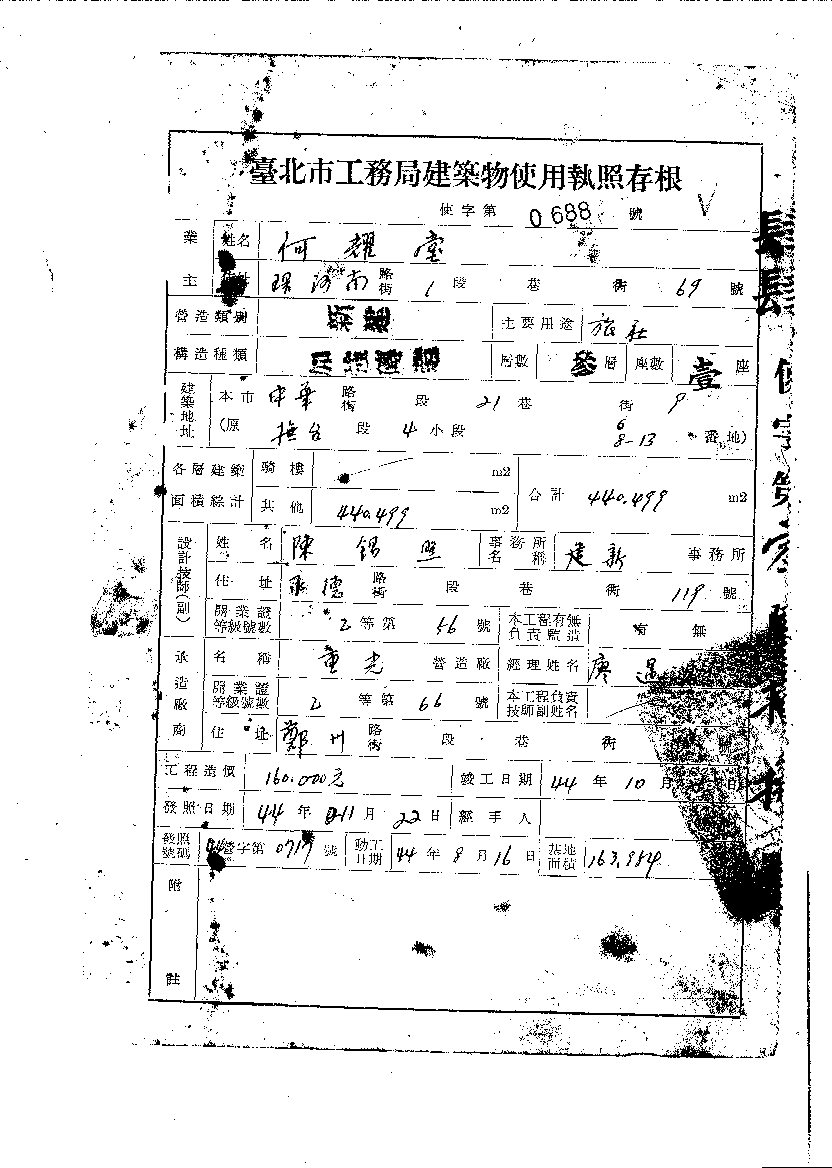 臺北市工務局建築物使用執照存根
使字第 0688 號 V
業主 姓名 何耀堂
住址 環河南 路街 1 段 巷 街 69 號
營造類別 主要用途 旅社
構造種類 層數 參層 座數 壹座
建築地址 本市 中華 路街 段 21 巷 街 9
(原 撫台 段 4 小段 6 8-13 番地)
各層建築面積綜計 騎樓 m2 合計 440.499 m2
其他 440.499 m2
設計技師(副) 姓名 陳錫 事務所名稱 建新 事務所
住址 承德 路街 段 巷 街 119 號
開業證等級號數 2 等第 56 號 本工程有無負責監造 有 無
承造廠商 名稱 重光 營造廠 經理姓名 廖
開業證等級號數 2 等第 66 號 本工程負責技師副姓名
住址 鄭州 路街 段 巷 街 號
工程造價 160.000元 竣工日期 44 年 10 月 日
發照日期 44 年 11 月 22 日 經手人
發照號碼 字第 號 動工日期 44 年 8 月 16 日 基地面積 163.984
附註
使字第零